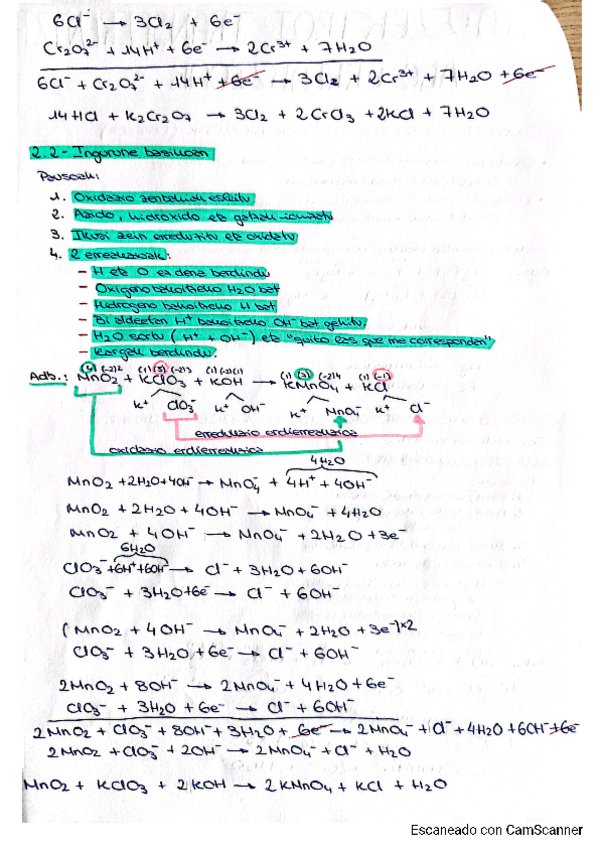 6Cl⁻ → 3Cl₂ + 6e⁻
Cr₂O₇²⁻ + 14H⁺ + 6e⁻ → 2Cr³⁺ + 7H₂O
6Cl⁻ + Cr₂O₇²⁻ + 14H⁺ + 6e⁻ → 3Cl₂ + 2Cr³⁺ + 7H₂O + 6e⁻
14HCl + K₂Cr₂O₇ → 3Cl₂ + 2CrCl₃ + 2KCl + 7H₂O
2.2- Ingurune basikoan
Pausoak:
1. Oxidazio zenbakiak esleitu
2. Azido, hidroxido eta gatzak ionizatu
3. Ikusi zein erreduzitu eta oxidatu
4. 2 erreakzioak:
- H eta O ez dena berdindu
- Oxigeno bakoitzeko H₂O bat
- Hidrogeno bakoitzeko H bat
- Bi aldeetan H⁺ bakoitzeko OH⁻ bat gehitu
- H₂O sortu (H⁺ + OH⁻) eta "quito las que me corresponden"
- Kargak berdindu.
(4) (-2)2 (1) (5) (-2)3 (1) (-2) (1) (1) (7) (-2)4 (1) (-1)
Adb.: MnO₂ + KClO₃ + KOH → KMnO₄ + KCl
K⁺ ClO₃⁻ K⁺ OH⁻ K⁺ MnO₄⁻ K⁺ Cl⁻
erredukzio erdierreakzioa
oxidazio erdierreakzioa
4H₂O
MnO₂ + 2H₂O + 4OH⁻ → MnO₄⁻ + 4H⁺ + 4OH⁻
MnO₂ + 2H₂O + 4OH⁻ → MnO₄⁻ + 4H₂O
MnO₂ + 4OH⁻ → MnO₄⁻ + 2H₂O + 3e⁻
6H₂O
ClO₃⁻ + 6H⁺ + 6OH⁻ → Cl⁻ + 3H₂O + 6OH⁻
ClO₃⁻ + 3H₂O + 6e⁻ → Cl⁻ + 6OH⁻
(MnO₂ + 4OH⁻ → MnO₄⁻ + 2H₂O + 3e⁻)×2
ClO₃⁻ + 3H₂O + 6e⁻ → Cl⁻ + 6OH⁻
2MnO₂ + 8OH⁻ → 2MnO₄⁻ + 4H₂O + 6e⁻
ClO₃⁻ + 3H₂O + 6e⁻ → Cl⁻ + 6OH⁻
2MnO₂ + ClO₃⁻ + 8OH⁻ + 3H₂O + 6e⁻ → 2MnO₄⁻ + Cl⁻ + 4H₂O + 6OH⁻ + 6e⁻
2MnO₂ + ClO₃⁻ + 2OH⁻ → 2MnO₄⁻ + Cl⁻ + H₂O
MnO₂ + KClO₃ + 2KOH → 2KMnO₄ + KCl + H₂O
Escaneado con CamScanner